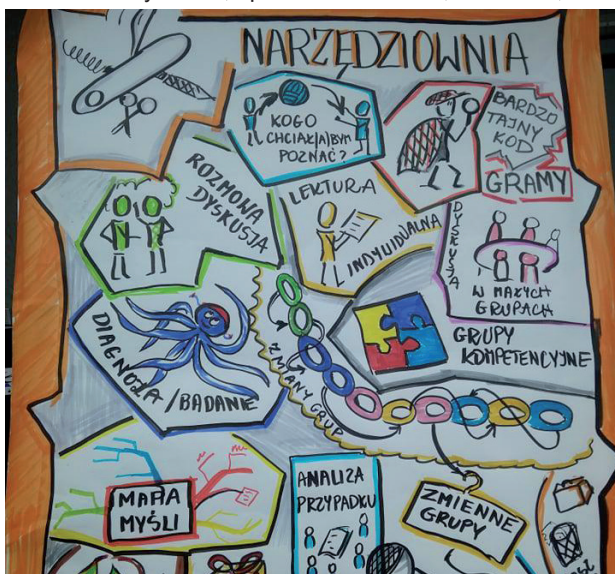 NARZĘDZIOWNIA
KOGO
CHCIAŁ(A)BYM
POZNAĆ?
BARDZO
TAJNY
KOD
GRAMY
ROZMOWA
DYSKUSJA
LEKTURA
INDYWIDUALNA
DYSKUSJA
W MAŁYCH
GRUPACH
GRUPY
KOMPETENCYJNE
DIAGNOZA / BADANIE
ZMIANY GRUP
MAPA
MYŚLI
ANALIZA
PRZYPADKU
ZMIENNE
GRUPY